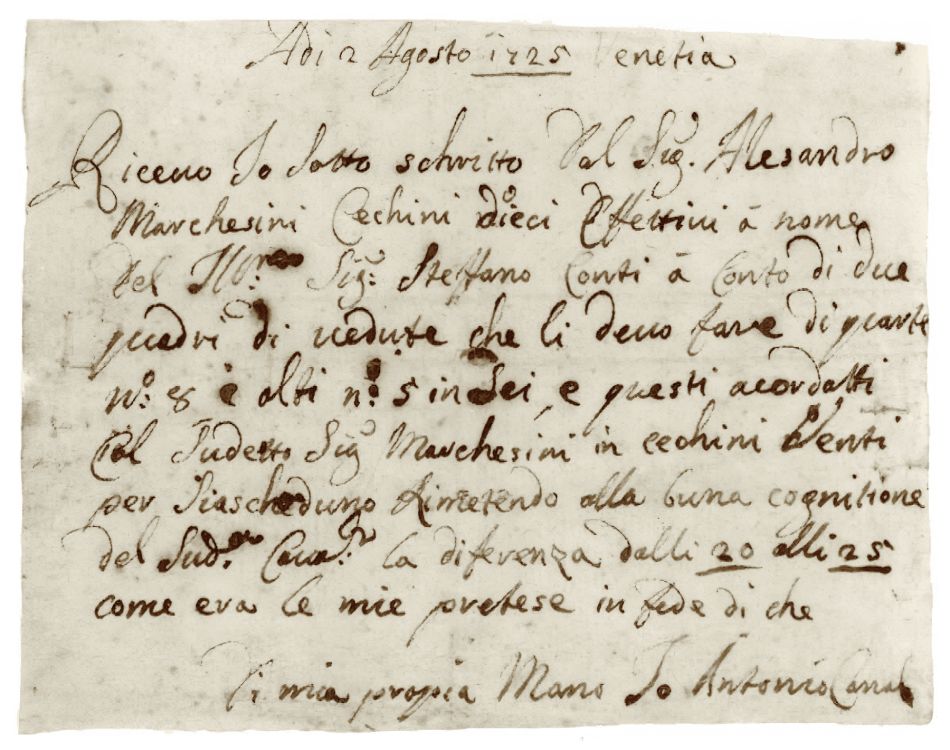 Adi 2 Agosto 1725 Venetia
Riceuo Io Sotto schritto dal Sig. Alesandro
Marchesini Cechini dieci Effettiui à nome
del Ill.mo Sig: Steffano Conti à Conto di due
quadri di uedute che li deuo fare di quarte
n:o 8 è alti n:o 5 in Sei, e questi acordatti
Col Sudetto Sig Marchesini in cechini Venti
per Siascheduno Rimetendo alla buna cognitione
del Sud.to Caua.r la diferenza dalli 20 alli 25
come era le mie pretese in fede di che
Di mia propia Mano Io Antonio Canal